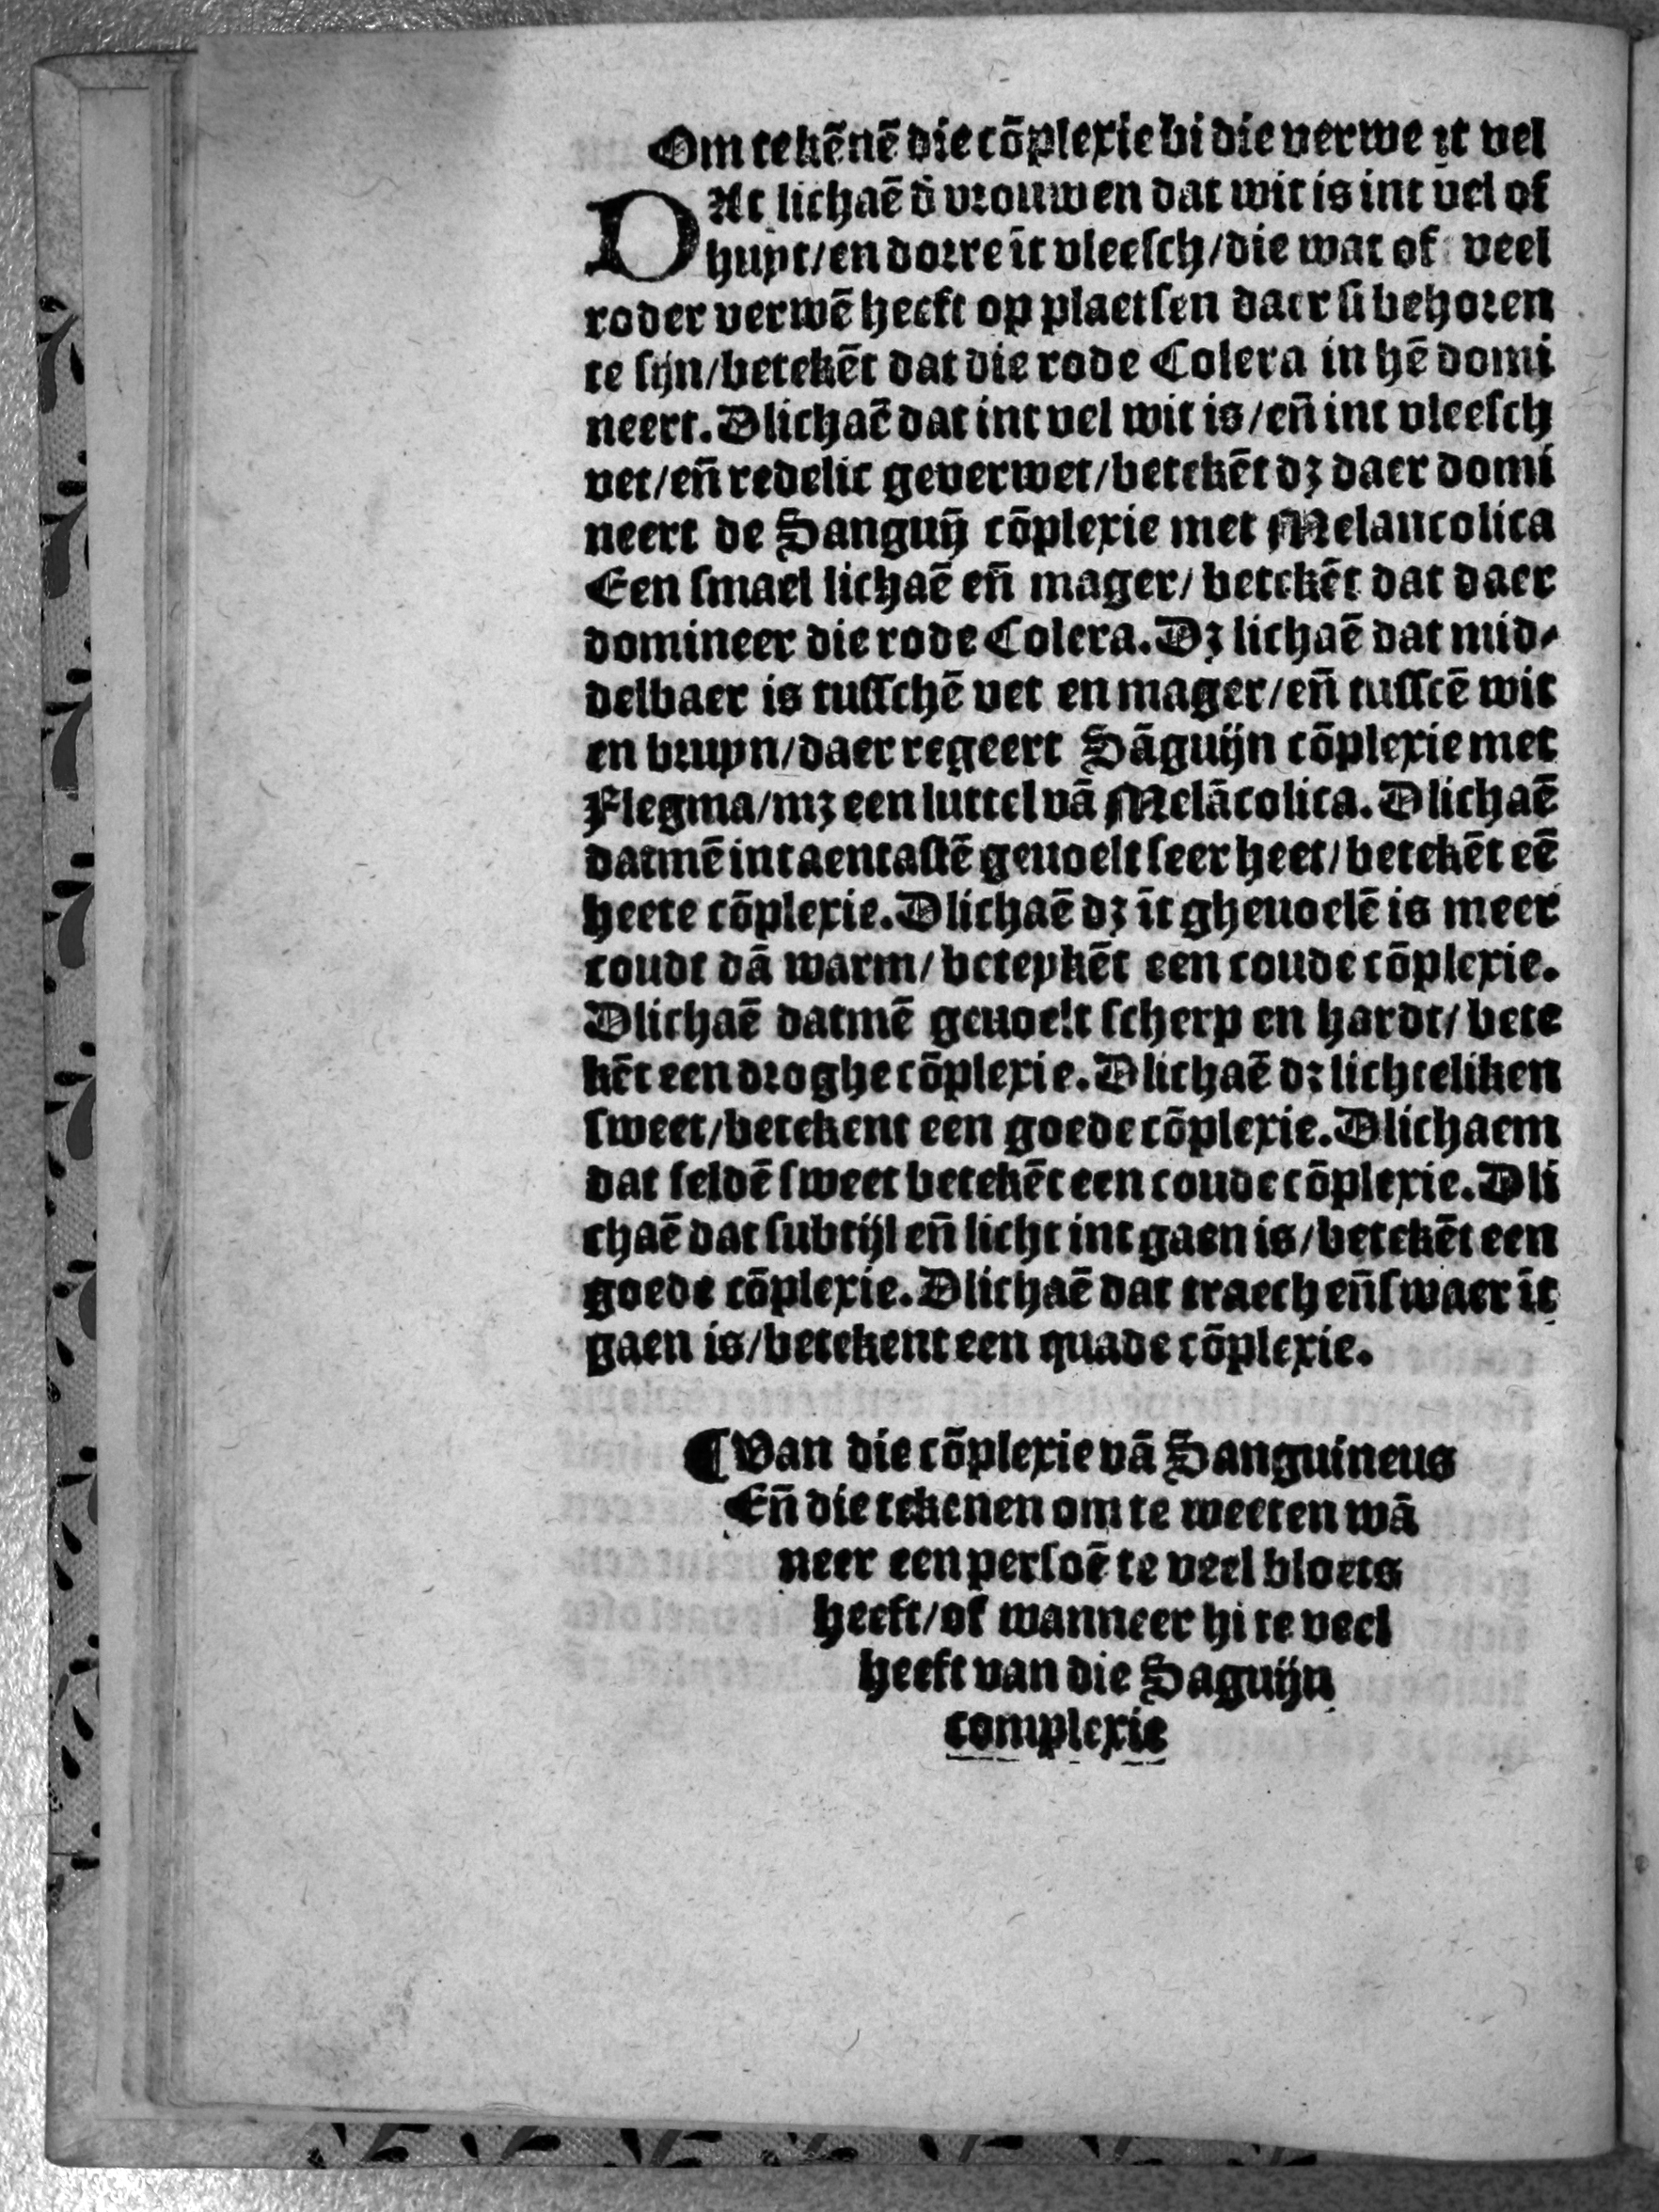 Om tekēnē die cōplexie bi die verwe īt vel
DAt lichaē d̄ vrouwen dat wit is int vel of
huyt/en dorre īt vleesch/die wat of veel
roder verwē heeft op plaetsen daer si behoren
te sijn/betekēt dat die rode Colera in hē domi
neert. Dlichaē dat int vel wit is/eñ int vleesch
vet/eñ redelic geverwet/betekēt dz daer domi
neert de Sanguȳ cōplexie met Melancolica
Een smael lichaē eñ mager/betekēt dat daer
domineer die rode Colera. Dz lichaē dat mid⸗
delbaer is tusschē vet en mager/eñ tusscē wit
en bruyn/daer regeert Sāguijn cōplexie met
Flegma/mz een luttel vā Melācolica. Dlichaē
datmē int aentastē gevoelt seer heet/betekēt eē
heete cōplexie. Dlichaē dz īt ghevoelē is meer
coudt dā warm/beteykēt een coude cōplexie.
Dlichaē datmē gevoelt scherp en hardt/bete
kēt een droghe cōplexie. Dlichaē dz lichteliken
sweet/betekent een goede cōplexie. Dlichaem
dat seldē sweet betekēt een coude cōplexie. Dli
chaē dat subtijl eñ licht int gaen is/betekēt een
goede cōplexie. Dlichaē dat traech eñ swaer īt
gaen is/betekent een quade cōplexie.
¶ Van die cōplexie vā Sanguineus
Eñ die tekenen om te weeten wā
neer een persoē te veel bloets
heeft/of wanneer hi te veel
heeft van die Saguijn
complexie